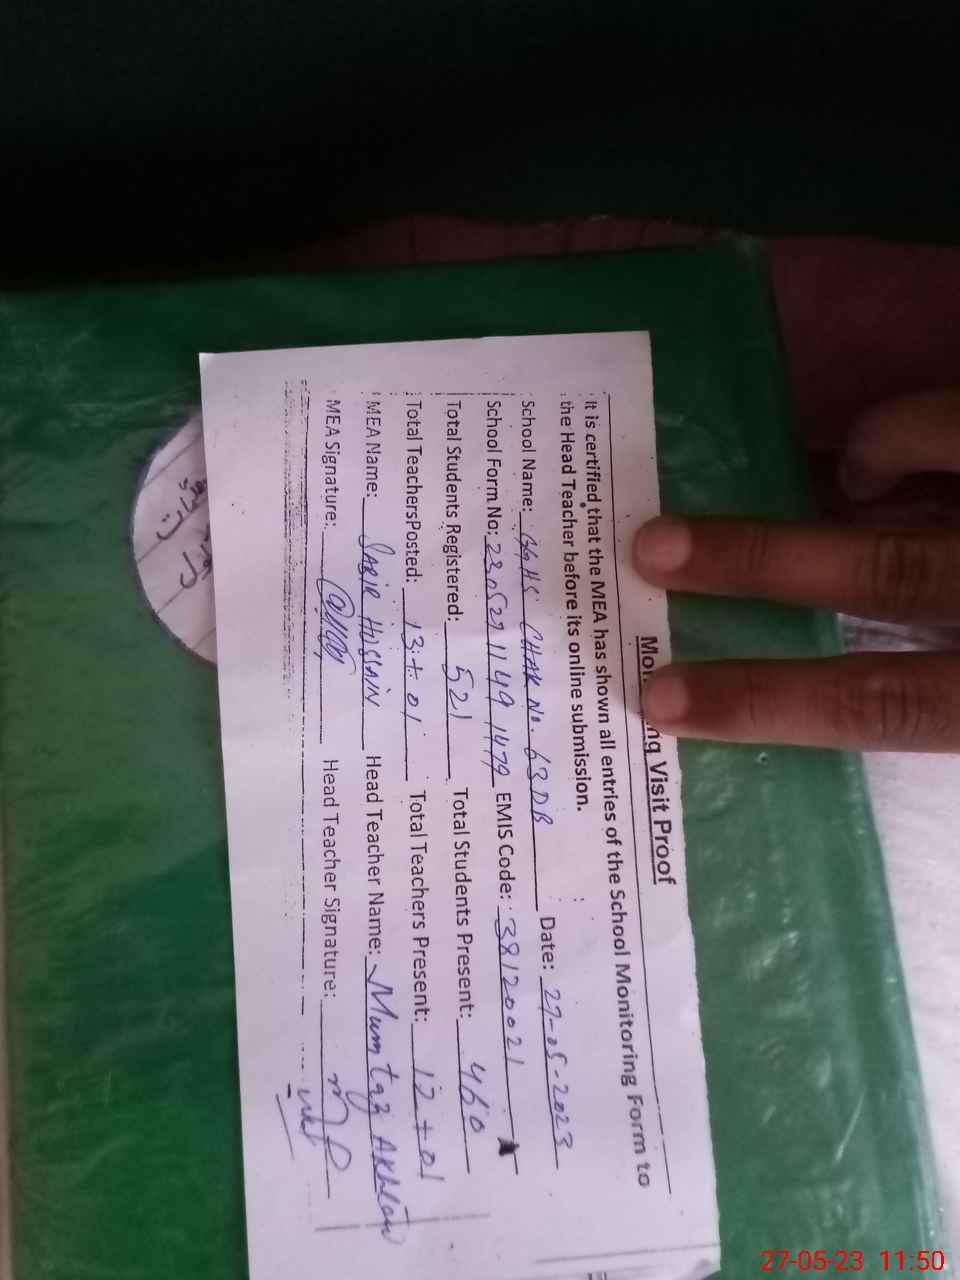 Mon ng Visit Proof
It is certified that the MEA has shown all entries of the School Monitoring Form to
the Head Teacher before its online submission.
School Name: GGHS CHAK No. 63DB Date: 27-05-2023
School Form No: 230527 1149 1479 EMIS Code: 38120021
Total Students Registered: 521 Total Students Present: 460
Total TeachersPosted: 13+01 Total Teachers Present: 12+01
MEA Name: SABIR HUSSAIN Head Teacher Name: Mumtaz Akhtar
MEA Signature: Head Teacher Signature:
27-05-23 11:50